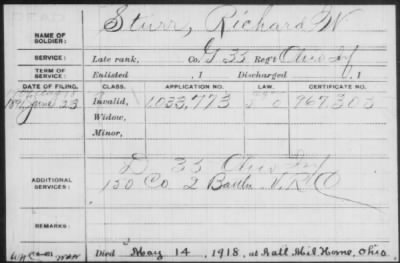 NAME OF SOLDIER: Sturr, Richard W
SERVICE: Late rank, Co. G 33 Reg't Ohio Inf
TERM OF SERVICE: Enlisted , 1 Discharged , 1
DATE OF FILING. CLASS. APPLICATION NO. LAW. CERTIFICATE NO.
1891 June 23 Invalid, 1,033,773 967303
Widow,
Minor,
ADDITIONAL SERVICES: D 33 Ohio Inf
130 Co 2 Battln V.R.C
REMARKS:
Died May 14, 1918, at Natl Mil Home, Ohio.